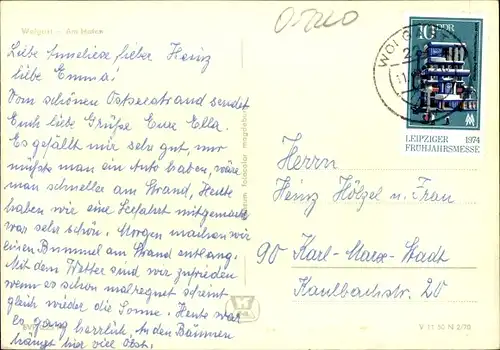 Wolgast - Am Hafen
Liebe Anneliese lieber Heinz
liebe Emma!
Vom schönen Ostseestrand sendet
Euch liebe Grüße Eure Ella.
Es gefällt mir sehr gut, nur
müßte man ein Auto haben, wäre
man schneller am Strand, Heute
haben wir eine Seefahrt mitgemacht
war sehr schön. Morgen machen wir
einen Bummel am Strand entlang.
Mit dem Wetter sind wir zufrieden
wenn es schon mal regnet scheint
gleich wieder die Sonne. Heute war
es ganz herrlich. An den Bäumen
hängt hier viel Obst.
foto color magdeburg
WOLGAST
10 DDR
LEIPZIGER 1974
FRÜHJAHRSMESSE
Herrn
Heinz Hölzel u. Frau
90 Karl-Marx-Stadt
Kaulbachstr. 20
V 11 50 N 2/70